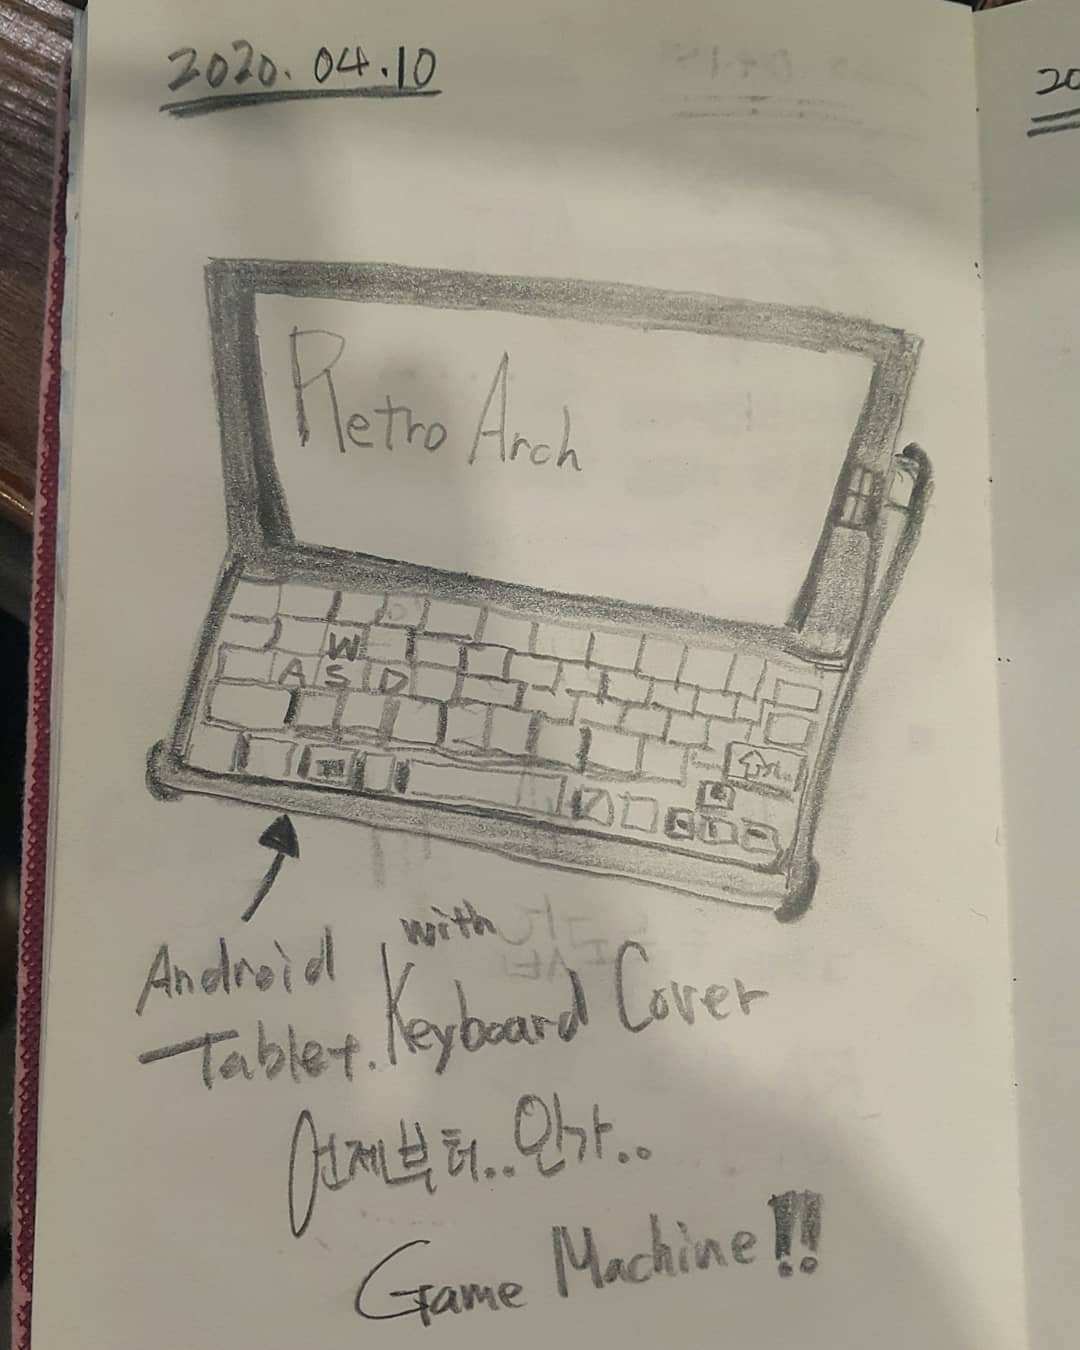 2020.04.10
20
Retro Arch
W
A S D
Android with
Tablet. Keyboard Cover
언제부터..인가..
Game Machine!!